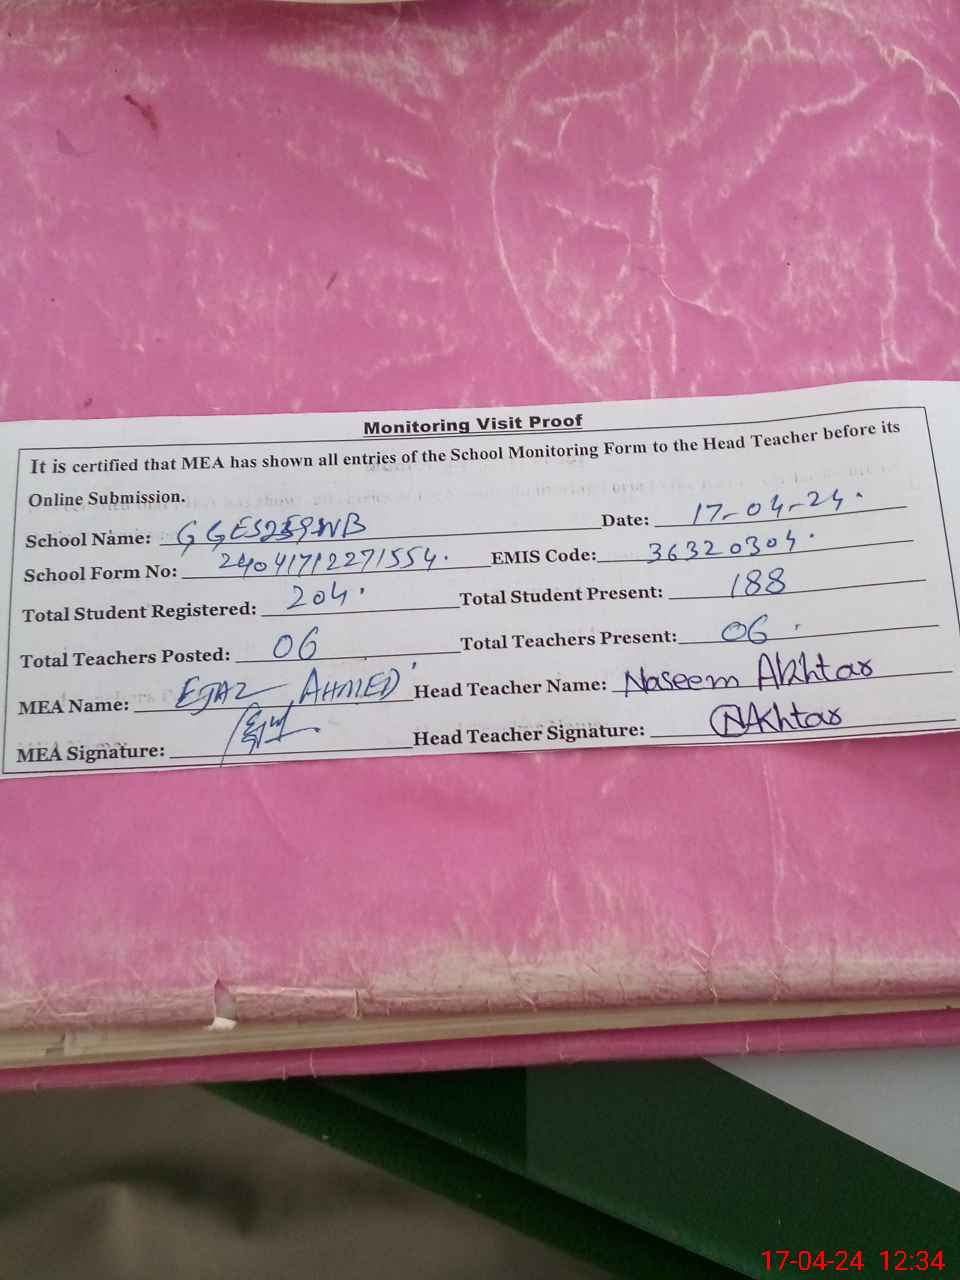 Monitoring Visit Proof
It is certified that MEA has shown all entries of the School Monitoring Form to the Head Teacher before its
Online Submission.
School Name: GGES 259 WB Date: 17-04-24.
School Form No: 24041712271554. EMIS Code: 36320304.
Total Student Registered: 204. Total Student Present: 188
Total Teachers Posted: 06 Total Teachers Present: 06.
MEA Name: EJAZ AHMED Head Teacher Name: Naseem Akhtar
MEA Signature: Head Teacher Signature: NAkhtar
17-04-24 12:34